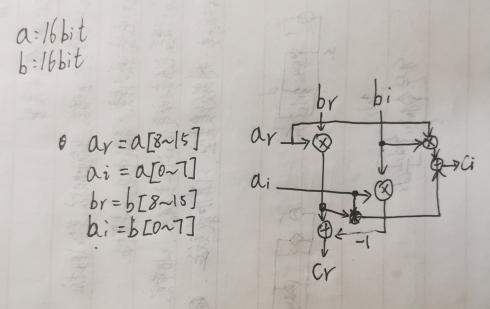 a=16bit
b=16bit
ar=a[8~15]
ai=a[0~7]
br=b[8~15]
bi=b[0~7]
br
bi
ar
ci
ai
-1
Cr